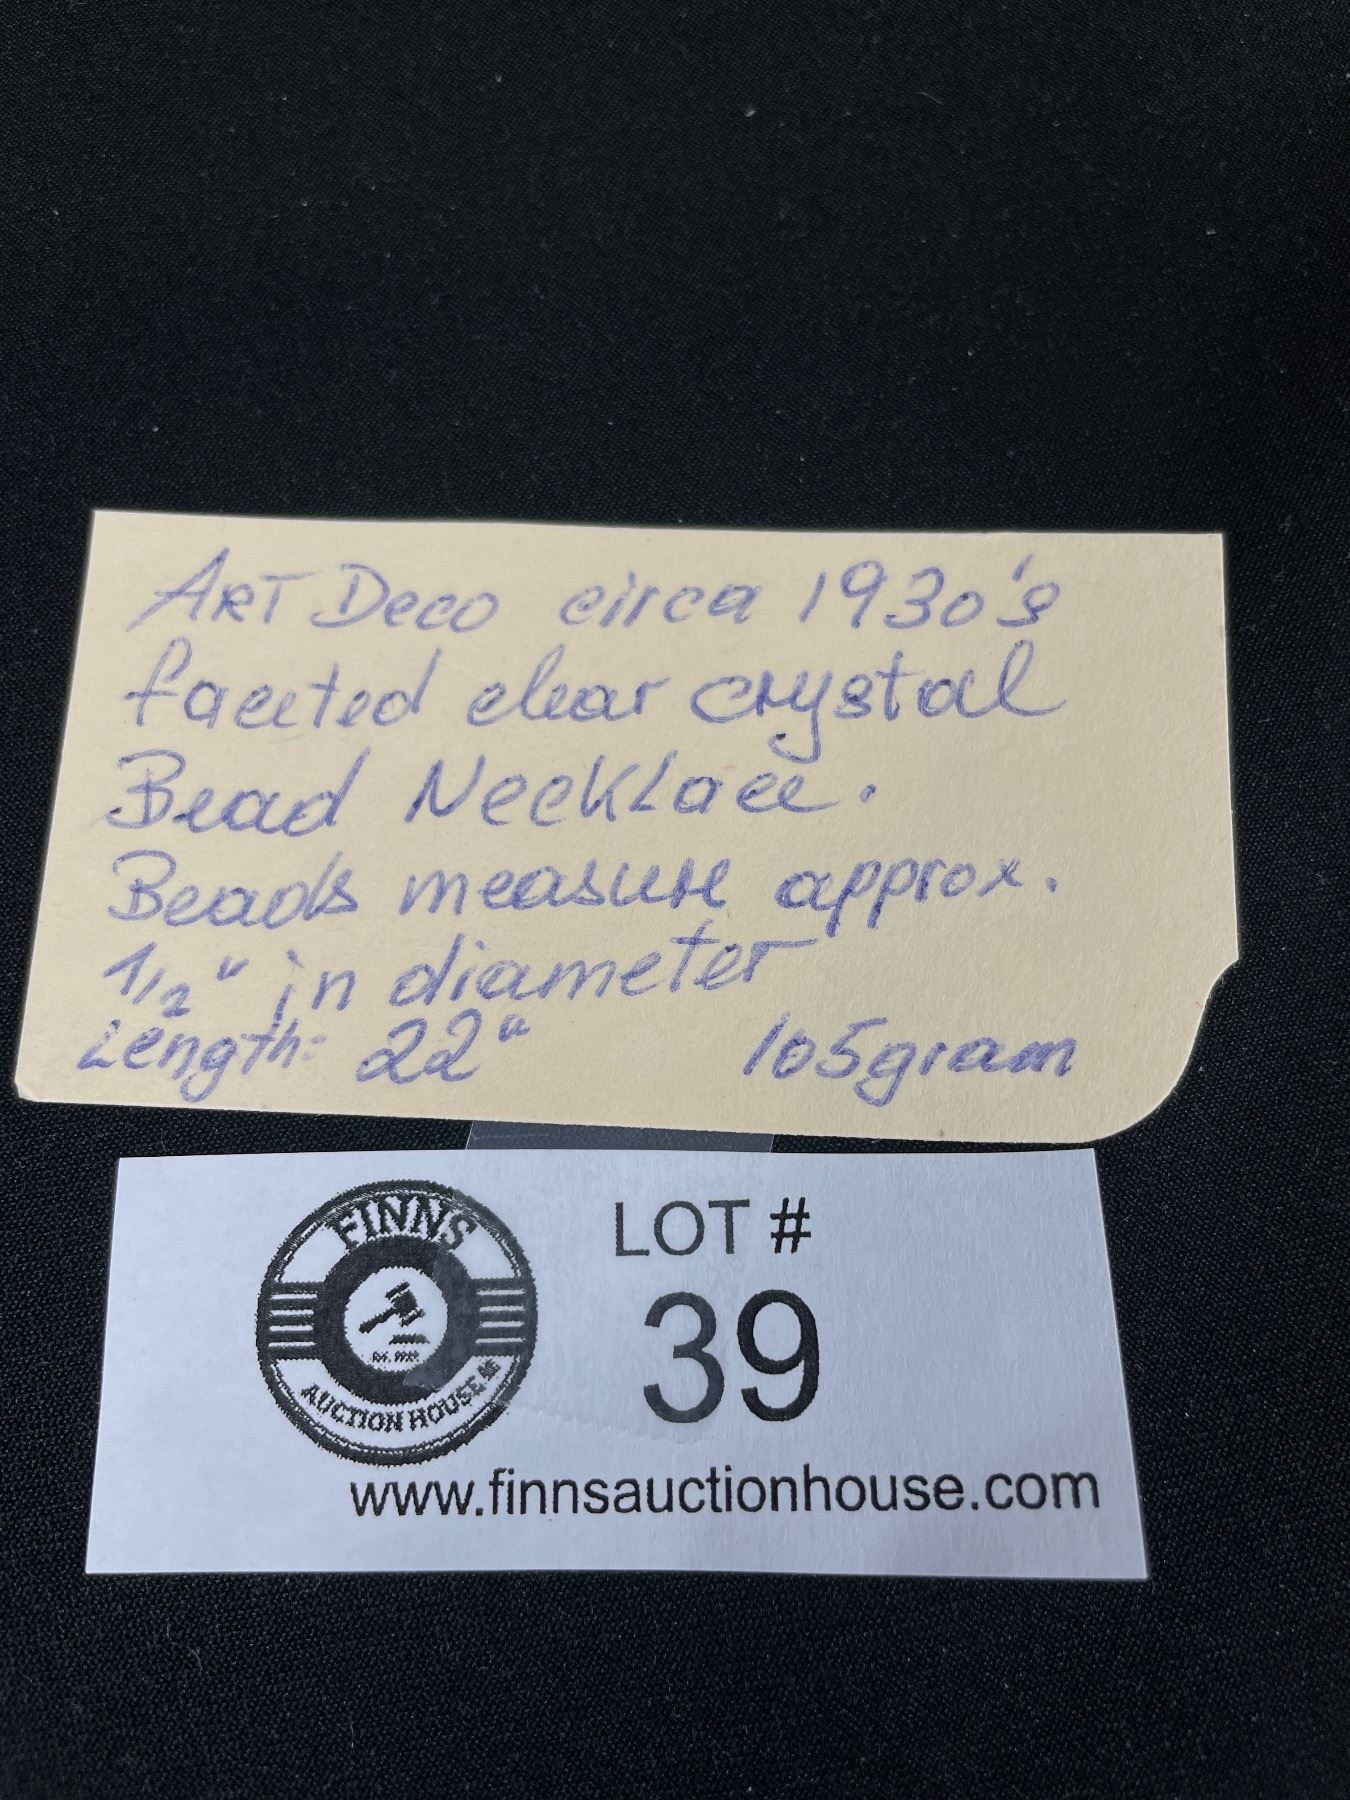 ART Deco circa 1930's
faceted clear crystal
Bead Necklace.
Beads measure approx.
1/2" in diameter
Length: 22" 105gram
FINNS
AUCTION HOUSE
LOT #
39
www.finnsauctionhouse.com